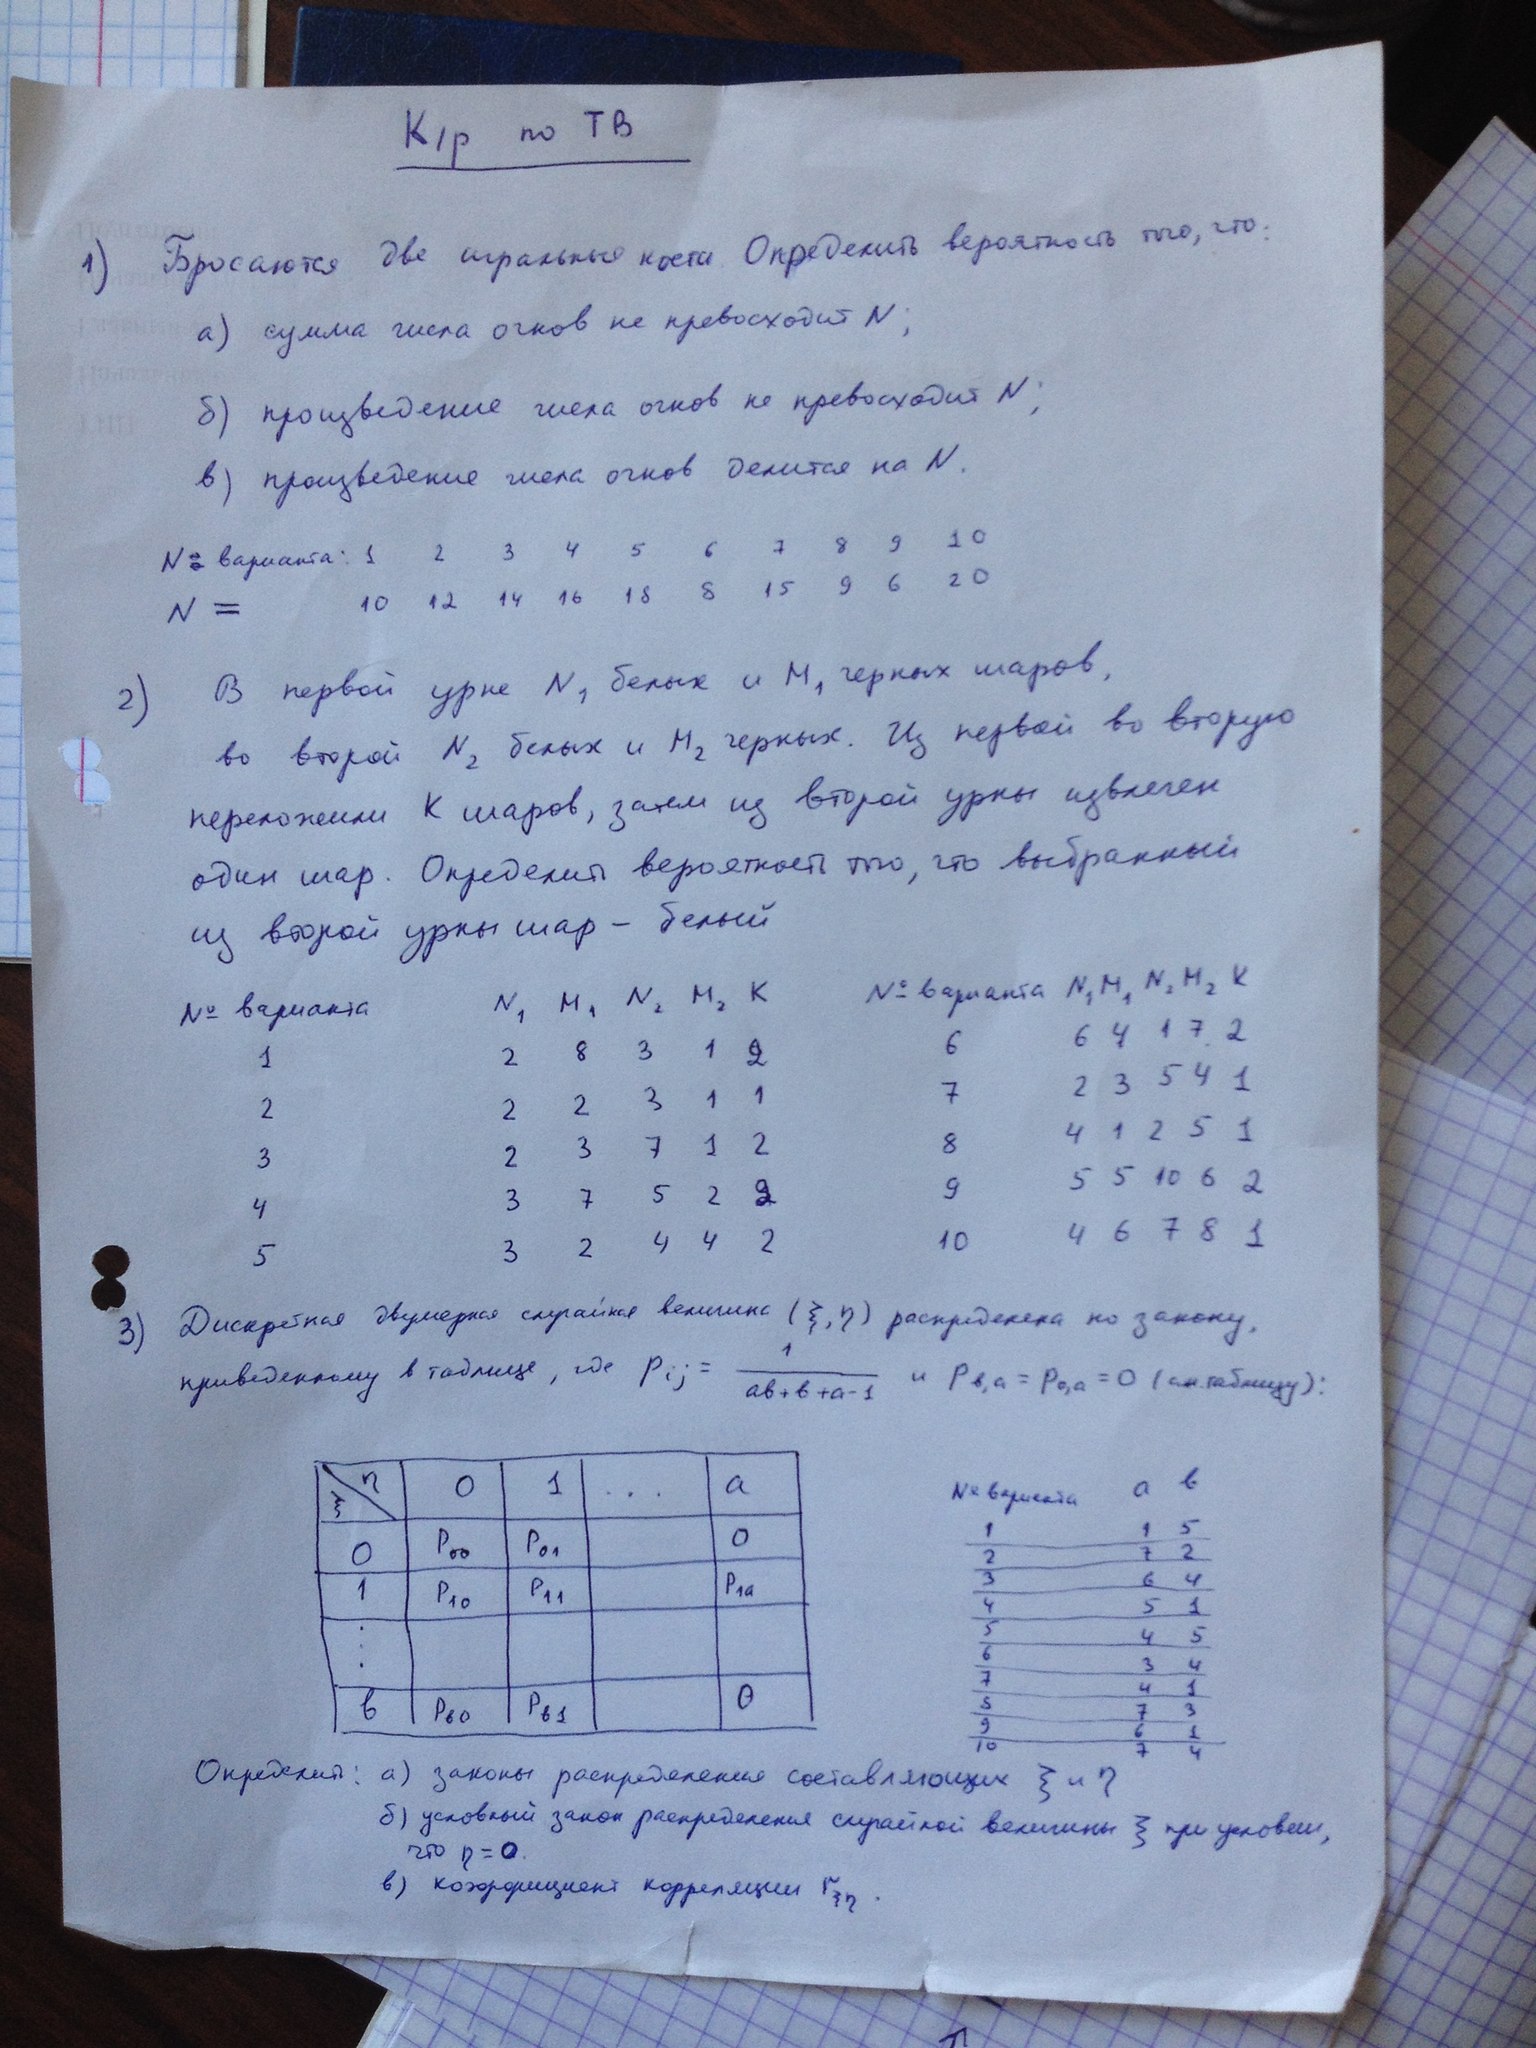 К/р по ТВ
1) Бросаются две игральные кости. Определить вероятность того, что:
а) сумма числа очков не превосходит N;
б) произведение числа очков не превосходит N;
в) произведение числа очков делится на N.
№ варианта: 1 2 3 4 5 6 7 8 9 10
N = 10 12 14 16 18 8 15 9 6 20
2) В первой урне N₁ белых и M₁ черных шаров,
во второй N₂ белых и M₂ черных. Из первой во вторую
переложили K шаров, затем из второй урны извлечен
один шар. Определить вероятность того, что выбранный
из второй урны шар – белый
№ варианта N₁ M₁ N₂ M₂ K
1 2 8 3 1 2
2 2 2 3 1 1
3 2 3 7 1 2
4 3 7 5 2 2
5 3 2 4 4 2
№ варианта N₁ M₁ N₂ M₂ K
6 6 4 1 7 2
7 2 3 5 4 1
8 4 1 2 5 1
9 5 5 10 6 2
10 4 6 7 8 1
3) Дискретная двумерная случайная величина (ξ, η) распределена по закону,
приведенному в таблице, где Pij = 1/(ab+b+a-1) и Pb,a = P0,a = 0 (см. таблицу):
η
ξ 0 1 ... a
0 P00 P01 0
1 P10 P11 P1a
⋮
b Pb0 Pb1 0
№ варианта a b
1 1 5
2 7 2
3 6 4
4 5 1
5 4 5
6 3 4
7 4 1
8 7 3
9 6 1
10 7 4
Определить: а) законы распределения составляющих ξ и η
б) условный закон распределения случайной величины ξ при условии,
что η = 0.
в) коэффициент корреляции rξη.